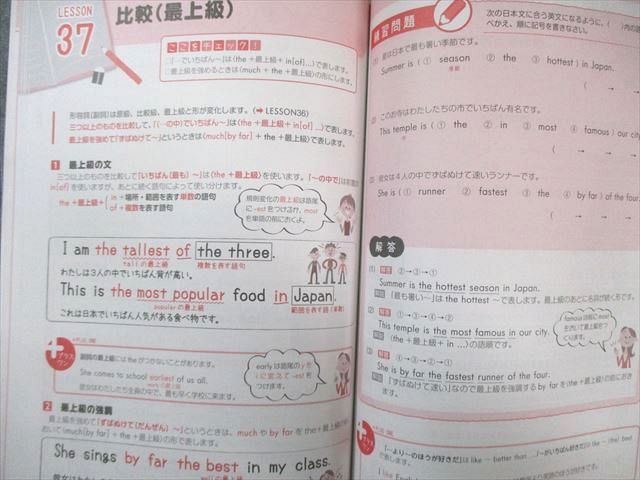 LESSON
37
比較(最上級)
ここをチェック!
□「…でいちばん～」は〈the＋最上級＋in[of]…〉で表します。
□最上級を強めるときは〈much＋the＋最上級〉の形にします。
形容詞(副詞)は原級、比較級、最上級と形が変化します。(➡LESSON36)
三つ以上のものを比較して、「(…の中で)いちばん～」は〈the＋最上級＋in[of]…〉で表します。
最上級を強めて「ずばぬけて～」というときは〈much[by far]＋the＋最上級〉で表します。
1 最上級の文
三つ以上のものを比較して「いちばん(最も)～」は〈the＋最上級〉を使います。「～の中で」は
in[of]を使いますが、あとに続く語句によって使い分けます。
the＋最上級＋
in＋場所・範囲を表す単数の語句
of＋複数を表す語句
規則変化の最上級は語尾
に-estをつけるか、most
を単語の前におくよ。
I am the tallest of the three.
tallの最上級 複数を表す語句
わたしは3人の中でいちばん背が高い。
This is the most popular food in Japan.
popularの最上級 範囲を表す語(単数)
これは日本でいちばん人気がある食べ物です。
プラスワン
PLUS ONE
副詞の最上級にはtheがつかないことがあります。
She comes to school earliest of us all.
earlyの最上級
彼女はわたしたち全員の中で、最も早く学校に来ます。
earlyは語尾のyを
iに変えて-estを
つけます。
2 最上級の強調
最上級を強めて「ずばぬけて(だんぜん)～」というときは、muchやby farをthe＋最上級の前に
おいて〈much[by far]＋the＋最上級〉の形で表します。
She sings by far the best in my class.
練習問題
次の日本文に合う英文になるように、( )内の語
べかえ、順に記号を書きなさい。
(1) 夏は日本で最も暑い季節です。
Summer is (① season ② the ③ hottest) in Japan.
季節
( → →
(2) このお寺はわたしたちの市でいちばん有名です。
This temple is (① the ② in ③ most ④ famous) our city.
( → →
(3) 彼女は4人の中でずばぬけて速いランナーです。
She is (① runner ② fastest ③ the ④ by far) of the four.
( → →
解答
(1) 解答 ②→③→①
Summer is the hottest season in Japan.
解説 「最も暑い～」はthe hottest～で表します。最上級のあとに名詞が続く形です。
(2) 解答 ①→③→④→②
This temple is the most famous in our city.
解説 〈the＋最上級＋in…〉の語順です。
famousは前にmost
をおいて最上級をつ
くります。
(3) 解答 ④→③→②→①
She is by far the fastest runner of the four.
解説 「ずばぬけて速い」なので最上級を強調するby farを〈the＋最上級〉の前におき
ます。
プラスワン
PLUS ONE
「…より～のほうが好きだ」はlike～(better than …)「～がいちばん好きだ」はlike～(the) best
で表します。